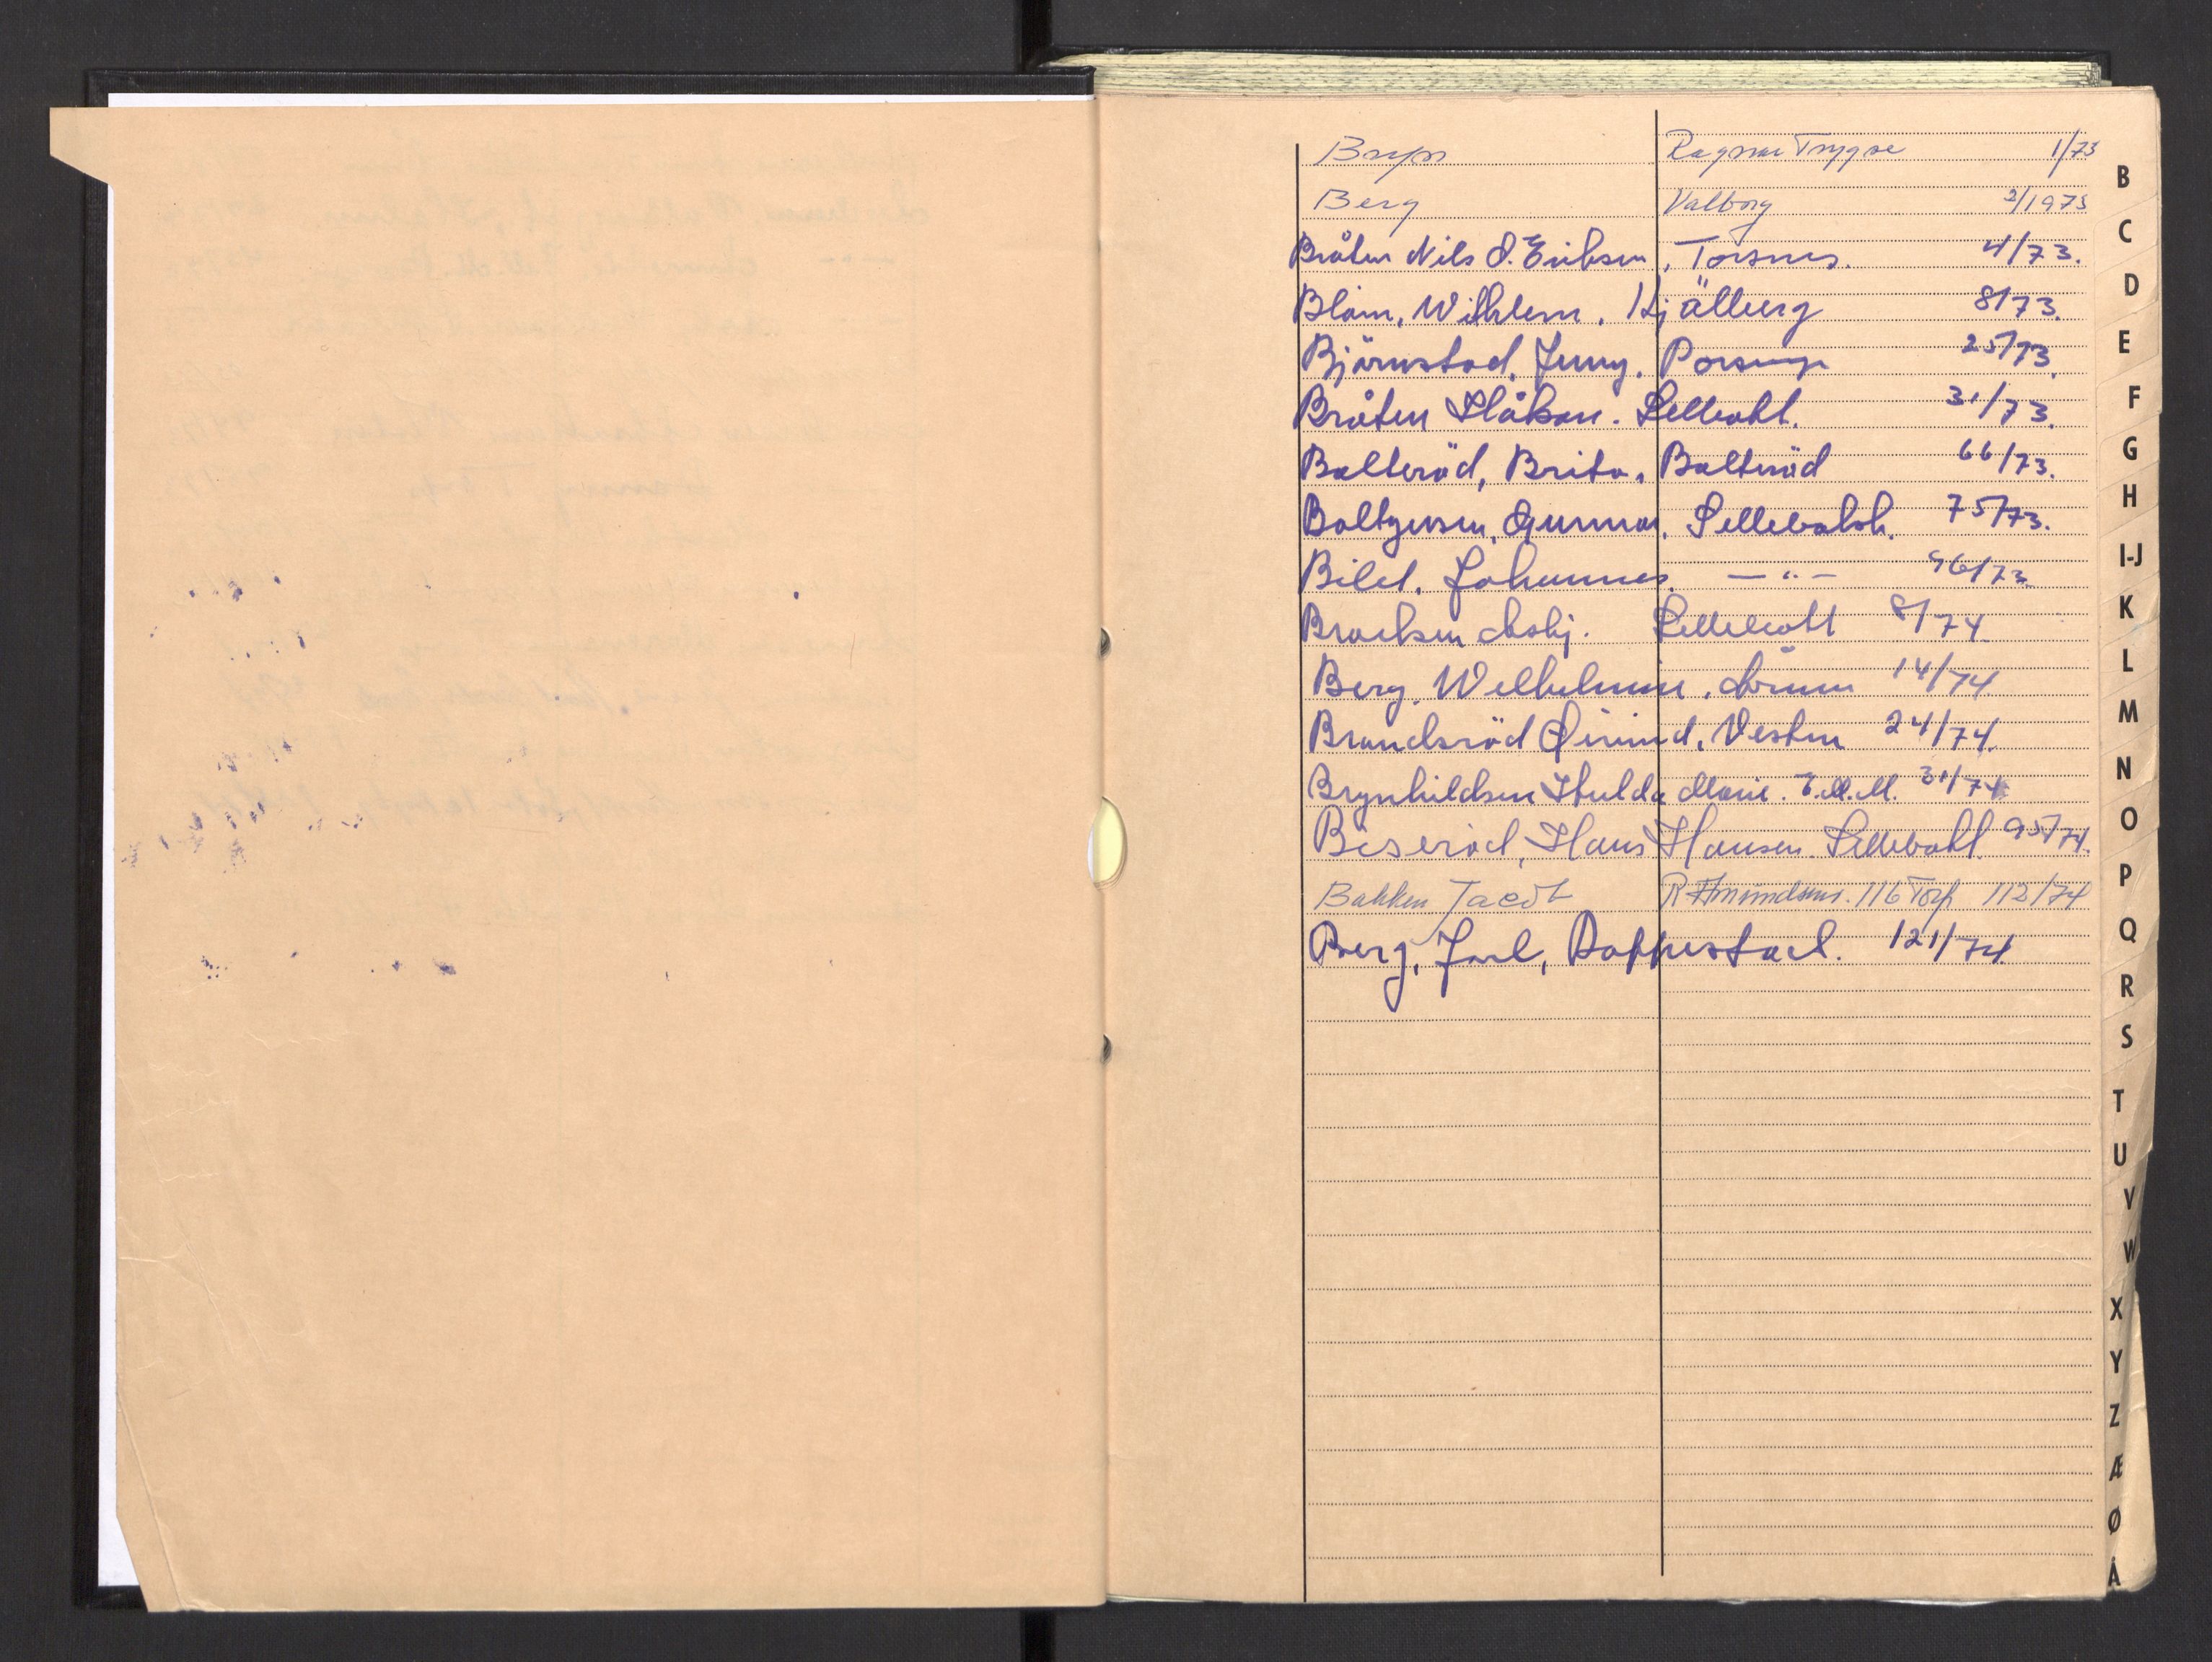 Ragnar Trygve 1/73
Berg Valborg 2/1973
Bråten Nils O. Eriksen, Torsnes. 4/73.
Blom, Wilhlem. Kjälberg 8/73.
Björnstad, Jenny. 25/73.
Bråten Håkon. Sellebakk. 31/73.
Balteröd, Brita. Balteröd 66/73.
Boltzersen, Gunnar. Sellebakk. 75/73.
Bilet. Johannes. —"— 96/73
Sellebakk 8/74
Berg. Wilhelmine. 14/74
Brandsröd Öivind. Vesten 24/74.
Brynhildsen Hulda Marie. E.M.M. 31/74
Biseröd, Hans Hansen. Sellebakk. 95/74.
Bakken Jacob R Amundsens. 116 Torp 112/74
Berg, Jarl, Roppestad. 121/74.
B
C
D
E
F
G
H
I-J
K
L
M
N
O
P
Q
R
S
T
U
V
W
X
Y
Z
Æ
Ø
Å